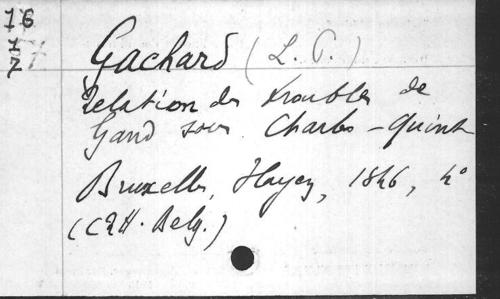 16
1
7
Gachard (L. P.)
Relation des troubles de
Gand sous Charles-Quint
Bruxelles, Hayez, 1846, 4°
(CRH. Belg.)